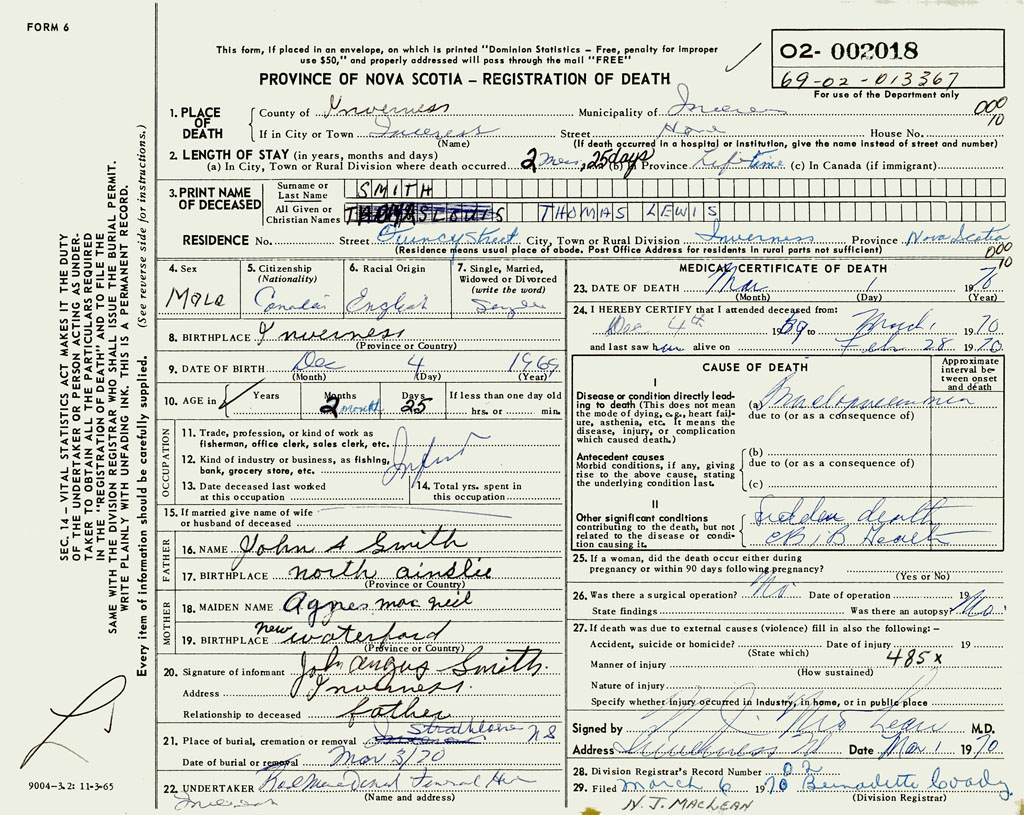 FORM 6
This form, if placed in an envelope, on which is printed "Dominion Statistics – Free, penalty for improper
use $50," and properly addressed will pass through the mail "FREE"
PROVINCE OF NOVA SCOTIA – REGISTRATION OF DEATH
02- 002018
69-02-013367
For use of the Department only
000
10
1. PLACE OF DEATH
County of Inverness Municipality of
If in City or Town Inverness Street House No.
(Name) (If death occurred in a hospital or institution, give the name instead of street and number)
2. LENGTH OF STAY (in years, months and days)
(a) In City, Town or Rural Division where death occurred 2 mos, 25 days (b) Province Lifetime (c) In Canada (if immigrant)
3. PRINT NAME OF DECEASED
Surname or Last Name SMITH
All Given or Christian Names THOMAS LEWIS
RESIDENCE No. Street Quincy Street City, Town or Rural Division Inverness Province Nova Scotia
(Residence means usual place of abode. Post Office Address for residents in rural parts not sufficient)
000
10
4. Sex
Male
5. Citizenship
(Nationality)
6. Racial Origin
English
7. Single, Married, Widowed or Divorced
(write the word)
Single
8. BIRTHPLACE Inverness
(Province or Country)
9. DATE OF BIRTH Dec 4 1969
(Month) (Day) (Year)
10. AGE in Years Months Days If less than one day old
2 month 25 hrs. or min.
OCCUPATION
11. Trade, profession, or kind of work as
fisherman, office clerk, sales clerk, etc.
12. Kind of industry or business, as fishing,
bank, grocery store, etc.
Infant
13. Date deceased last worked
at this occupation
14. Total yrs. spent in
this occupation
15. If married give name of wife
or husband of deceased
FATHER
16. NAME John A Smith
17. BIRTHPLACE north ainslie
(Province or Country)
MOTHER
18. MAIDEN NAME Agnes mac neil
19. BIRTHPLACE new waterford
(Province or Country)
20. Signature of informant John Angus Smith.
Address Inverness.
Relationship to deceased father
21. Place of burial, cremation or removal Strathlorne NS
Date of burial or removal Mar 3/70
22. UNDERTAKER Funeral
(Name and address)
Inverness
MEDICAL CERTIFICATE OF DEATH
23. DATE OF DEATH Mar 1 1970
(Month) (Day) (Year)
24. I HEREBY CERTIFY that I attended deceased from:
Dec 4th 1969 to March 1 1970
and last saw him alive on Feb 28 1970
CAUSE OF DEATH
Approximate interval between onset and death
I
Disease or condition directly leading to death (This does not mean the mode of dying, e.g., heart failure, asthenia, etc. It means the disease, injury, or complication which caused death.)
(a)
due to (or as a consequence of)
Antecedent causes
Morbid conditions, if any, giving rise to the above cause, stating the underlying condition last.
(b)
due to (or as a consequence of)
(c)
II
Other significant conditions
contributing to the death, but not related to the disease or condition causing it.
Sudden death
25. If a woman, did the death occur either during
pregnancy or within 90 days following pregnancy?
(Yes or No)
26. Was there a surgical operation? No Date of operation 19
State findings Was there an autopsy? No
27. If death was due to external causes (violence) fill in also the following: –
Accident, suicide or homicide? Date of injury 19
(State which)
485x
Manner of injury
(How sustained)
Nature of injury
Specify whether injury occurred in industry, in home, or in public place
Signed by N J MacLean M.D.
Address Inverness NS Date Mar 1 1970
28. Division Registrar's Record Number 02
29. Filed March 6 1970 Bernadette Coady
(Division Registrar)
N.J. MACLEAN
SEC. 14 – VITAL STATISTICS ACT MAKES IT THE DUTY
OF THE UNDERTAKER OR PERSON ACTING AS UNDER-
TAKER TO OBTAIN ALL THE PARTICULARS REQUIRED
IN THE "REGISTRATION OF DEATH" AND TO FILE THE
SAME WITH THE DIVISION REGISTRAR WHO SHALL ISSUE THE BURIAL PERMIT.
WRITE PLAINLY WITH UNFADING INK. THIS IS A PERMANENT RECORD.
Every item of information should be carefully supplied. (See reverse side for instructions.)
9004-3.2: 11-3-65